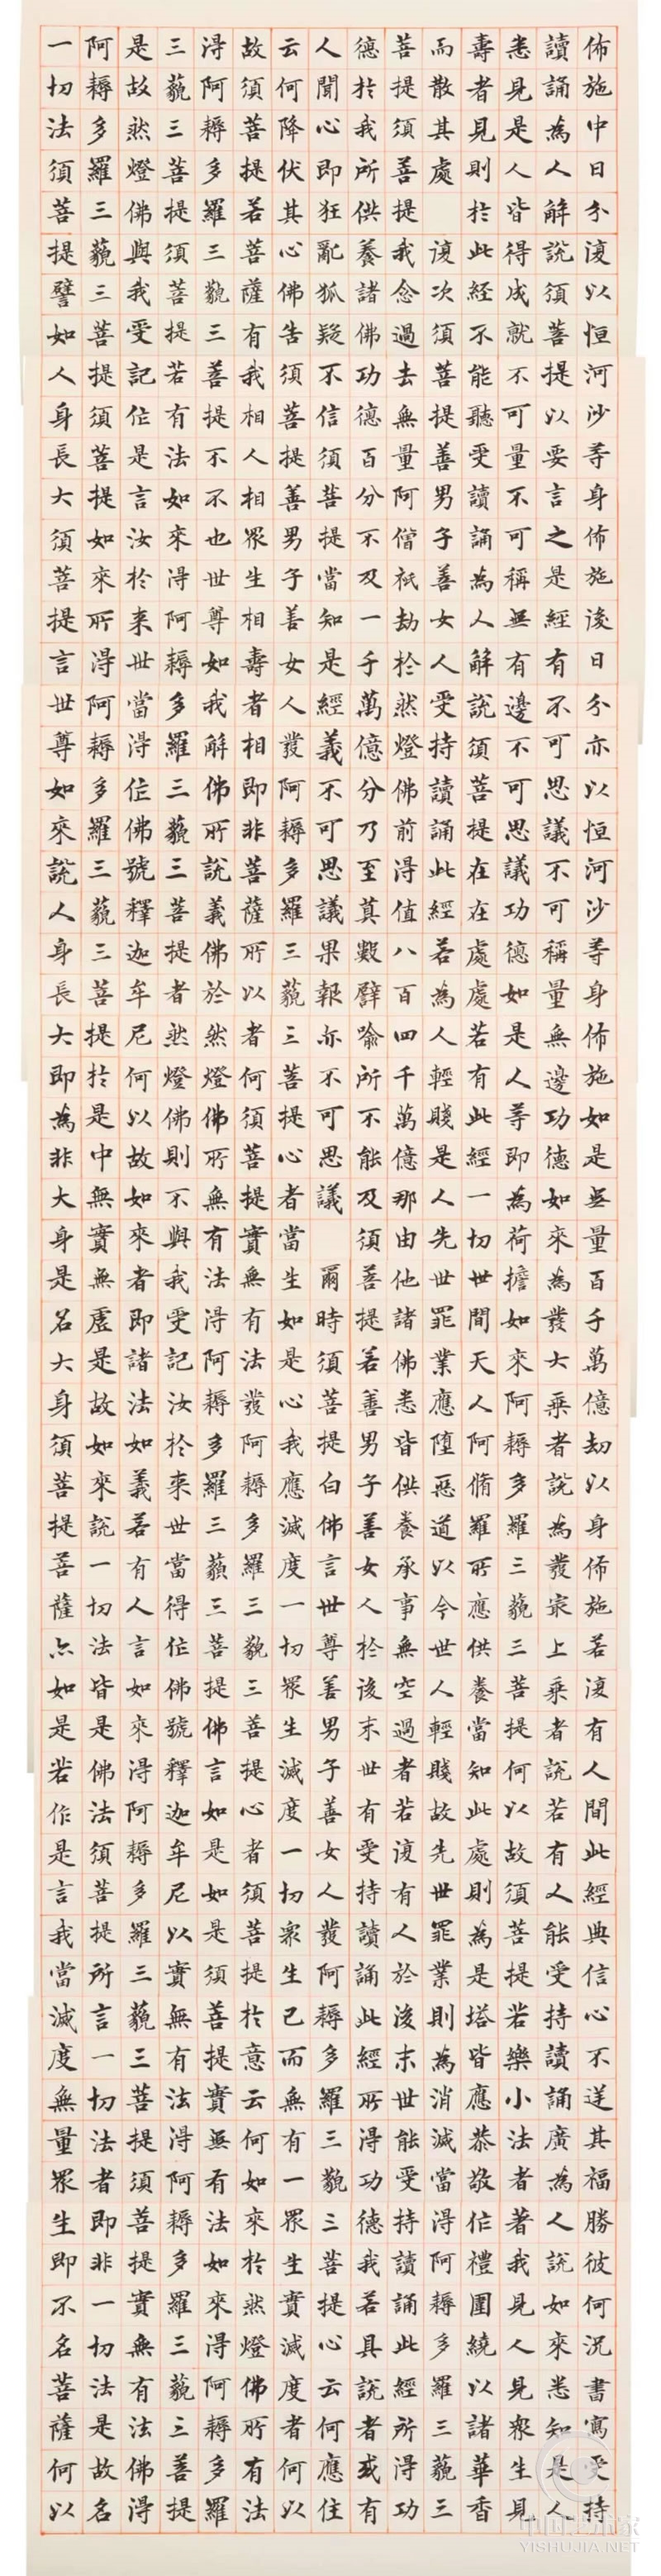 佈施中日分復以恒河沙等身佈施後日分亦以恒河沙等身佈施如是無量百千萬億劫以身佈施若復有人聞此經典信心不逆其福勝彼何況書寫受持
讀誦為人解說須菩提以要言之是經有不可思議不可稱量無邊功德如來為發大乘者說為發最上乘者說若有人能受持讀誦廣為人說如來悉知是人
悉見是人皆得成就不可量不可稱無有邊不可思議功德如是人等即為荷擔如來阿耨多羅三藐三菩提何以故須菩提若樂小法者著我見人見眾生見
壽者見則於此經不能聽受讀誦為人解說須菩提在在處處若有此經一切世間天人阿脩羅所應供養當知此處則為是塔皆應恭敬作禮圍繞以諸華香
而散其處 復次須菩提善男子善女人受持讀誦此經若為人輕賤是人先世罪業應墮惡道以今世人輕賤故先世罪業則為消滅當得阿耨多羅三藐三
菩提須菩提我念過去無量阿僧祇劫於然燈佛前得值八百四千萬億那由他諸佛悉皆供養承事無空過者若復有人於後末世能受持讀誦此經所得功
德於我所供養諸佛功德百分不及一千萬億分乃至算數譬喻所不能及須菩提若善男子善女人於後末世有受持讀誦此經所得功德我若具說者或有
人聞心即狂亂狐疑不信須菩提當知是經義不可思議果報亦不可思議 爾時須菩提白佛言世尊善男子善女人發阿耨多羅三藐三菩提心云何應住
云何降伏其心佛告須菩提善男子善女人發阿耨多羅三藐三菩提心者當生如是心我應滅度一切眾生滅度一切眾生已而無有一眾生實滅度者何以
故須菩提若菩薩有我相人相眾生相壽者相即非菩薩所以者何須菩提實無有法發阿耨多羅三藐三菩提心者須菩提於意云何如來於然燈佛所有法
得阿耨多羅三藐三菩提不不也世尊如我解佛所說義佛於然燈佛所無有法得阿耨多羅三藐三菩提佛言如是如是須菩提實無有法如來得阿耨多羅
三藐三菩提須菩提若有法如來得阿耨多羅三藐三菩提者然燈佛則不與我受記汝於來世當得作佛號釋迦牟尼以實無有法得阿耨多羅三藐三菩提
是故然燈佛與我受記作是言汝於來世當得作佛號釋迦牟尼何以故如來者即諸法如義若有人言如來得阿耨多羅三藐三菩提須菩提實無有法佛得
阿耨多羅三藐三菩提須菩提如來所得阿耨多羅三藐三菩提於是中無實無虛是故如來說一切法皆是佛法須菩提所言一切法者即非一切法是故名
一切法須菩提譬如人身長大須菩提言世尊如來說人身長大即為非大身是名大身須菩提菩薩亦如是若作是言我當滅度無量眾生即不名菩薩何以
中国艺术家
YISHUJIA.NET